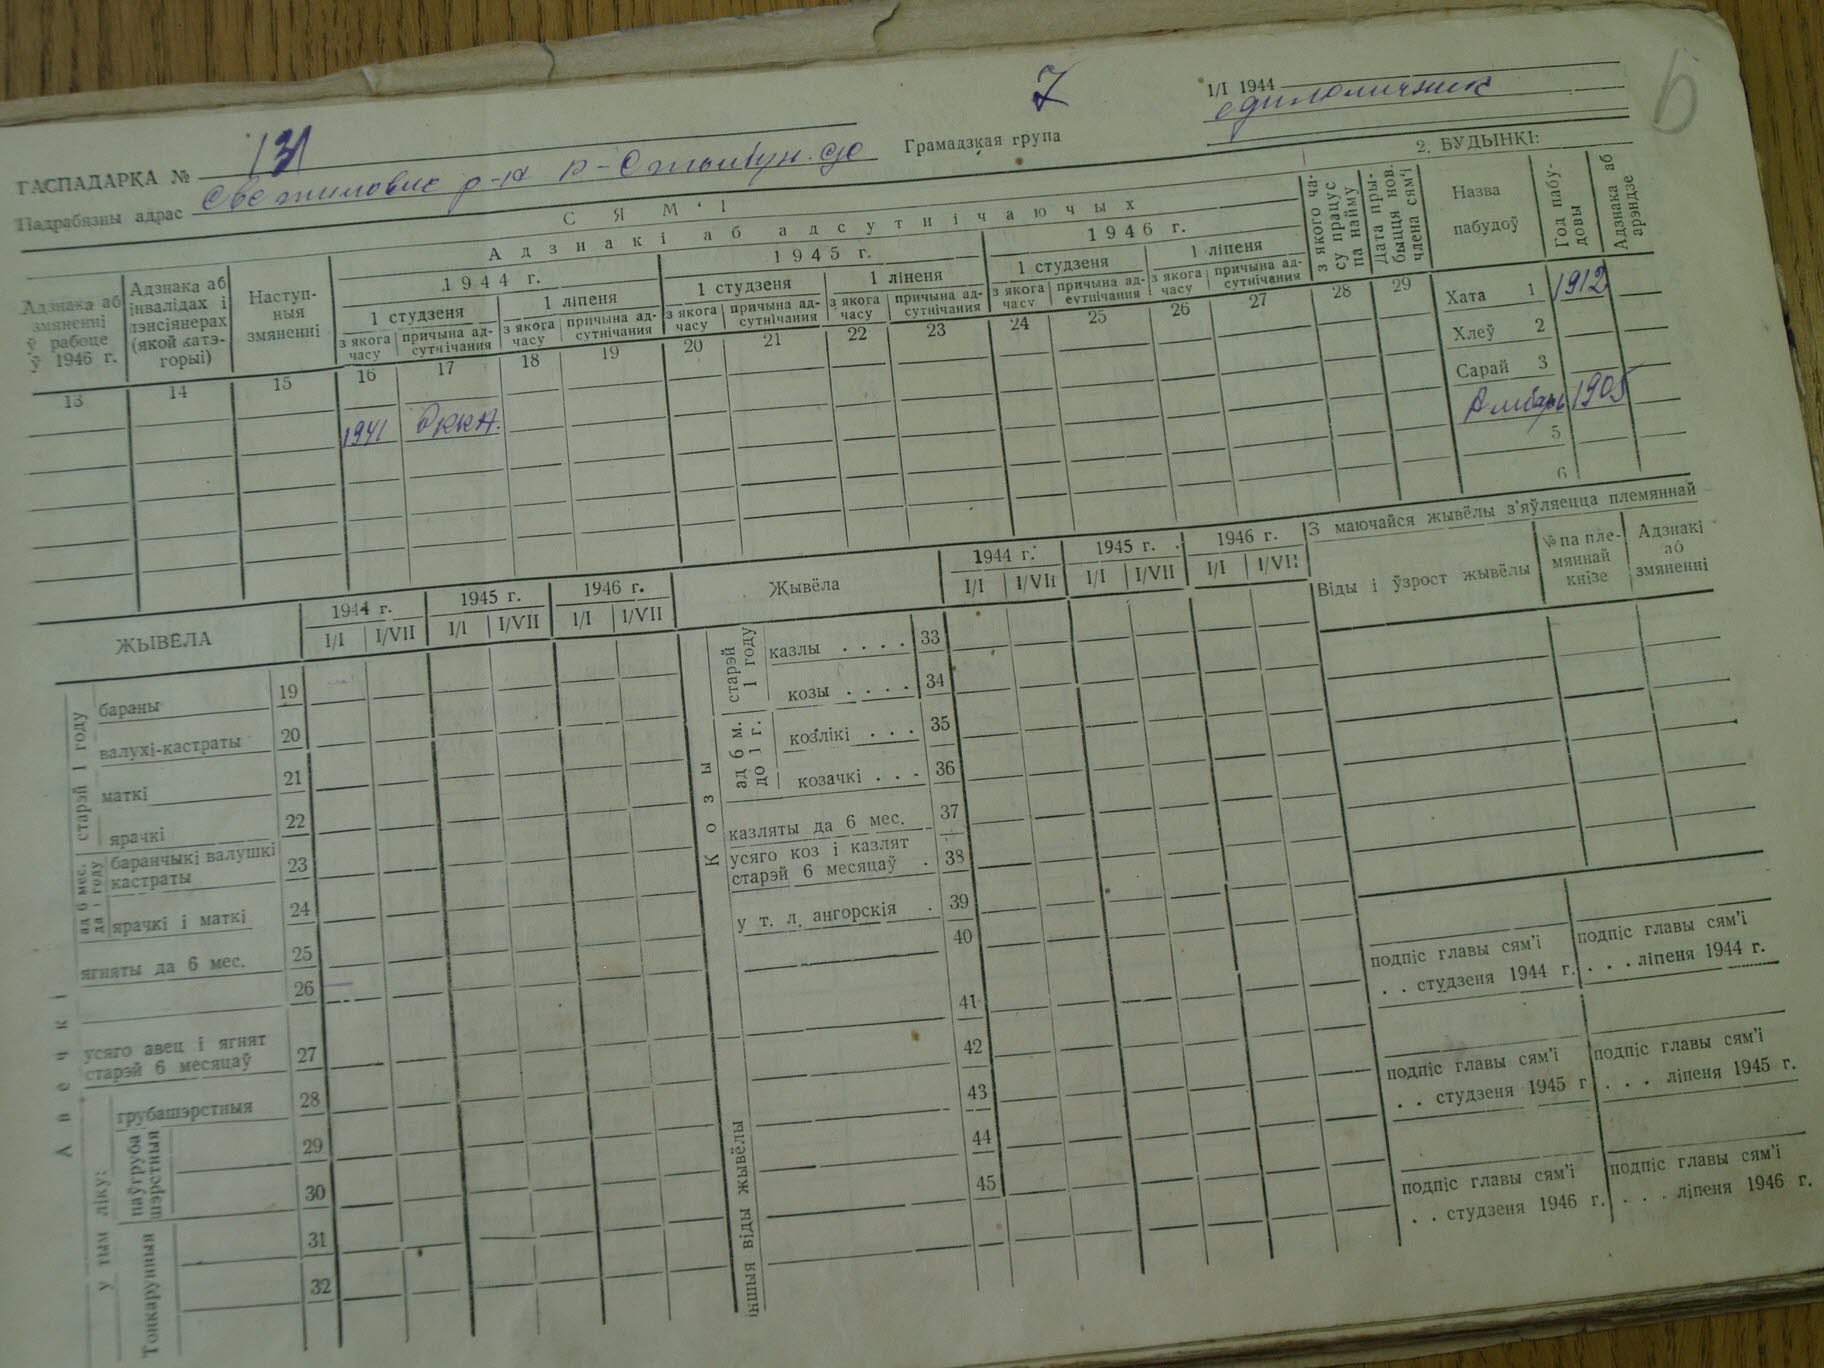 7
I/I 1944
единоличник
ГАСПАДАРКА № 131
Грамадзкая група
Падрабязны адрас Светиловис р-н
2. БУДЫНКІ:
СЯМ'І
Адзнакі аб адсутнічаючых
Адзнака аб змяненні ў рабоце ў 1946 г.
Адзнака аб інвалідах і пэнсіянерах (якой катэгорыі)
Наступныя змяненні
1944 г.
1945 г.
1946 г.
1 студзеня
1 ліпеня
1 студзеня
1 ліпеня
1 студзеня
1 ліпеня
з якога часу
причына адсутнічания
з якога часу
причына адсутнічания
з якога часу
причына адсутнічания
з якога часу
причына адсутнічания
з якога часу
причына адсутнічания
з якога часу
причына адсутнічания
з якого часу працус па найму
Дата прыбыцця нов. члена сям'і
Назва пабудоў
Год пабудовы
Адзнака аб арэндзе
13 14 15 16 17 18 19 20 21 22 23 24 25 26 27 28 29
Хата 1 1912
Хлеў 2
Сарай 3
Амбарь 1905
5
6
1941 РККА.
ЖЫВЁЛА
1944 г. 1945 г. 1946 г.
I/I I/VII I/I I/VII I/I I/VII
Авечкі
старэй 1 году
бараны 19
валухі-кастраты 20
маткі 21
ярачкі 22
ад 6 мес. да 1 году
баранчыкі валушкі кастраты 23
ярачкі і маткі 24
ягняты да 6 мес. 25
26
усяго авец і ягнят старэй 6 месяцаў 27
у тым ліку:
грубашэрстныя 28
паўгруба шэрстныя
29
30
Тонкарунныя
31
32
Жывёла
1944 г. 1945 г. 1946 г.
I/I I/VII I/I I/VII I/I I/VII
Козы
старэй 1 году
казлы . . . . 33
козы . . . . 34
ад 6 м. до 1 г.
козлікі . . . 35
козачкі . . . 36
казляты да 6 мес. 37
усяго коз і казлят старэй 6 месяцаў . 38
у т. л. ангорскія . 39
40
іншыя віды жывёлы
41
42
43
44
45
З маючайся жывёлы з'яўляецца племяннай
Віды і ўзрост жывёлы
№ па племяннай кнізе
Адзнакі аб змяненні
подпіс главы сям'і
. . студзеня 1944 г.
подпіс главы сям'і
. . . ліпеня 1944 г.
подпіс главы сям'і
. . студзеня 1945 г
подпіс главы сям'і
. . . ліпеня 1945 г.
подпіс главы сям'і
. . студзеня 1946 г.
подпіс главы сям'і
. . . ліпеня 1946 г.